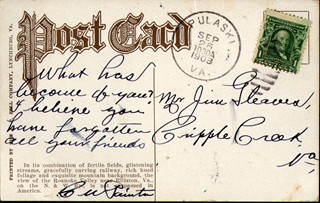 Post Card
PULASKI
SEP
26
1909
VA.
What has
become of you?
I believe you
have forgotten
all your friends
Mr Jim Cleaves,
Cripple Creek,
Va
In its combination of fertile fields, glistening
streams, gracefully curving railway, rich hued
foliage and exquisite mountain background, the
view of the Roanoke Valley near Elliston, Va.,
on the N. & W. Ry. is not surpassed in
America.
PRINTED BY COMPANY, LYNCHBURG, VA.